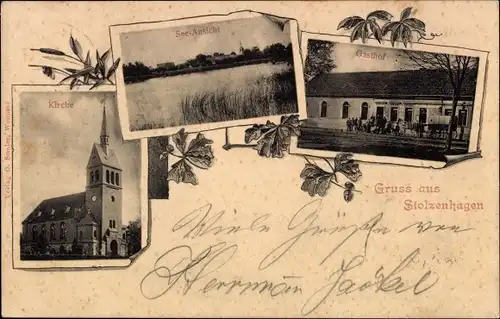 See-Ansicht
Gasthof
Kirche
Verlag O.
Gruss aus
Stolzenhagen
Viele Grüße von
Herrman Jäckel